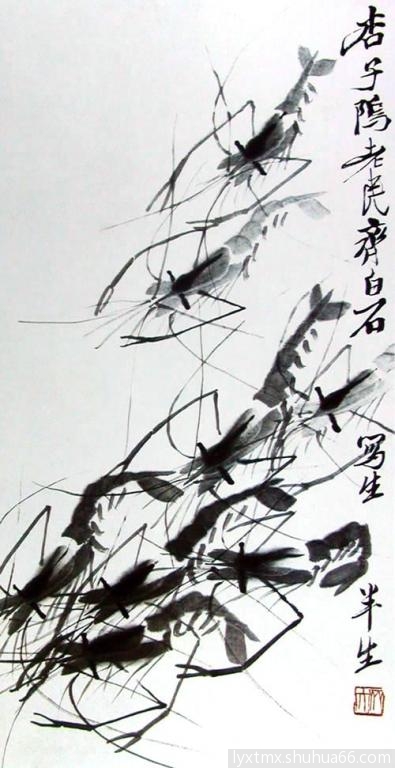 杏子隖老民齊白石
写生
半生
lyxtmx.shuhua66.com